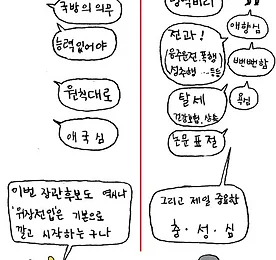 국방의 의무
능력있어야
원칙대로
애국심
이번 장관후보도 역시나
'위장전입'은 기본으로
깔고 시작하는구나
애향심
전과!
음주운전, 폭행
성추행 … 등등
뻔뻔함
탈세
건강보험, 상속
욕심
논문 표절
그리고 제일 중요한
충·성·심